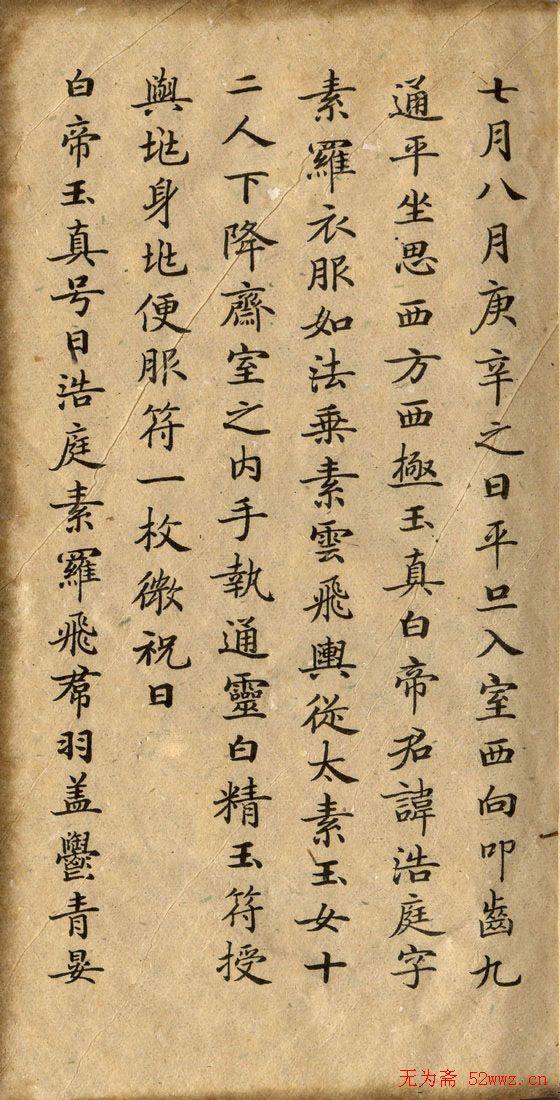 七月八月庚辛之日平旦入室西向叩齒九
通平坐思西方西極玉真白帝君諱浩庭字
素羅衣服如法乗素雲飛輿從太素玉女十
二人下降齋室之内手執通靈白精玉符授
與兆身兆便服符一枚微祝曰
白帝玉真号曰浩庭素羅飛帬羽盖鬱青晏
无为斋 52wwz.cn